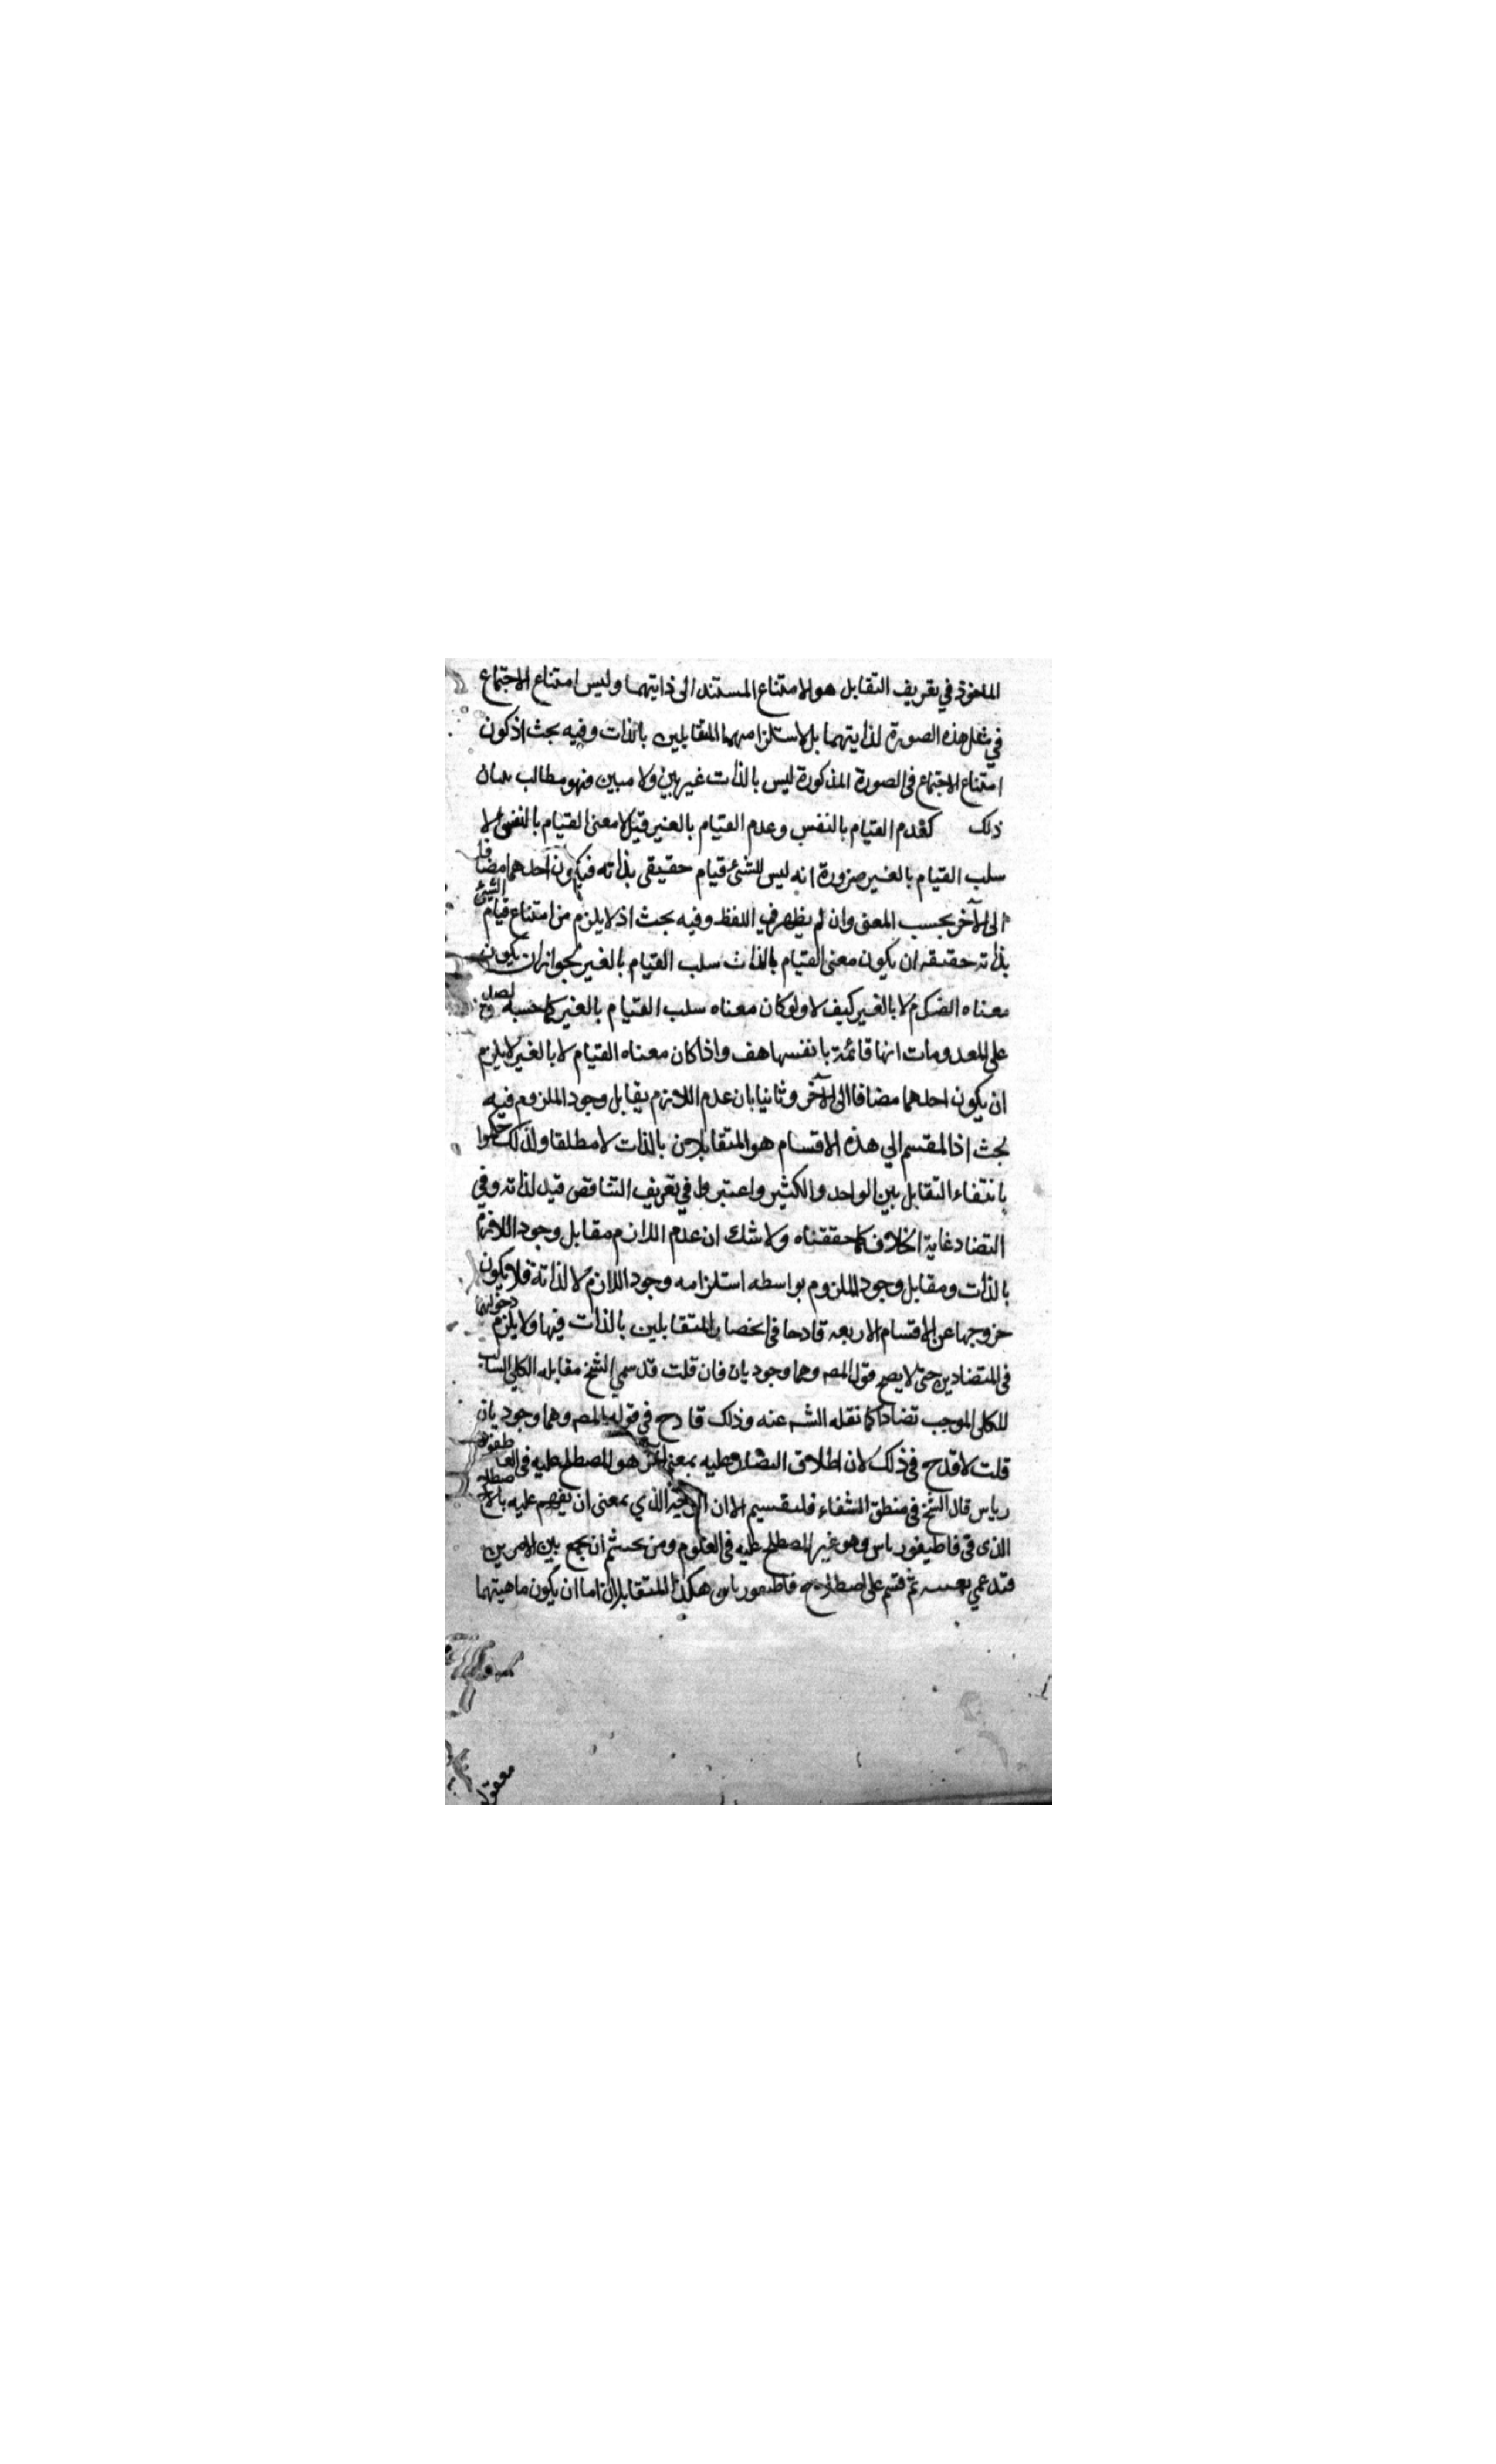 الماخوذ في تعريف التقابل هو الامتناع المستند الى ذاتيهما وليس امتناع الاجتماع
في مثل هذه الصورة لذاتيهما بل لاستلزامهما المتقابلين بالذات وفيه بحث اذ كون
امتناع الاجتماع في الصورة المذكورة ليس بالذات غير بين ولا مبين فهو مطالب ببيان
ذلك كعدم القيام بالنفس وعدم القيام بالغير قيل لا معنى القيام بالنفس الا
سلب القيام بالغير ضرورة انه ليس للشئ قيام حقيقي بذاته فيكون احدهما مضافا
الى الآخر بحسب المعنى وان لم يظهر في اللفظ وفيه بحث اذ لا يلزم من امتناع قيام الشئ
بذاته حقيقة ان يكون معنى القيام بالذات سلب القيام بالغير لجواز ان يكون
معناه لا بالغير كيف لا ولو كان معناه سلب القيام بالغير كما حسبه لصدق
على المعدومات انها قائمة بانفسها هف واذا كان معناه القيام لا بالغير لا يلزم
ان يكون احدهما مضافا الى الآخر وثانيا بان عدم اللازم يقابل وجود الملزوم وفيه
بحث اذ المقسم الي هذه الاقسام هو المتقابلان بالذات لا مطلقا ولذلك حكموا
بانتفاء التقابل بين الواحد والكثير واعتبروا في تعريف التناقض قيد لذاته وفي
التضاد غاية الخلاف كما حققناه ولا شك ان عدم اللازم مقابل وجود اللازم
بالذات ومقابل وجود الملزوم بواسطه استلزامه وجود اللازم لا لذاته فلا يكون
خروجها عن الاقسام الاربعه قادحا في انحصار المتقابلين بالذات فيها ولا يلزم دخولها
في المتضادين حتى لا يصح قول المصه وهما وجوديان فان قلت قد سمي الشيخ مقابله الكلي السالب
للكلي الموجب تضادا كما نقله الشه عنه وذلك قادح في قوله المصه وهما وجوديان
قلت لا قدح في ذلك لان اطلاق التضاد عليه بمعنى آخر هو المصطلح عليه في القاطيغو
رياس قال الشيخ في منطق الشفاء فلنقسم الان الذي بمعنى ان نفهم عليه بالاصطلاح
الذي في قاطيغورياس وهو غير المصطلح عليه في العلوم ومن تجشم ان يجمع بين الامرين
فقد عمي ثم قسم على اصطلاح قاطيغورياس هكذا المتقابلان اما ان يكون ماهيتهما
معقولة